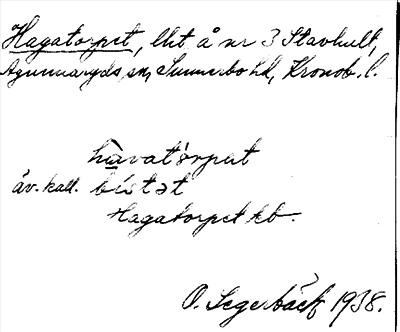 Hagatorpet, lht å nr 3 Stavhult,
Agunnaryds sn, Sunnerbo hd, Kronob. l.
havatórput
äv. kall. bístət
Hagatorpet kb.
O. Segerbäck 1938.